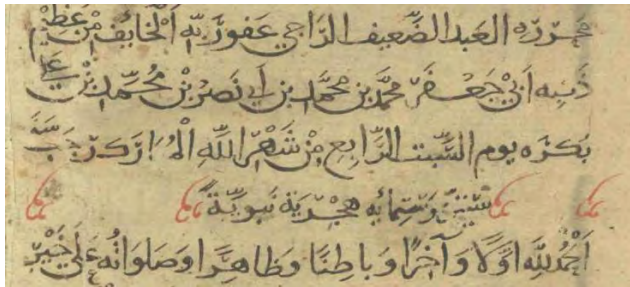 حرره العبد الضعيف الراجي عفو ربه الخايف من عظيم
ذنبه ابي جعفر محمد بن محمد بن ابي نصر بن محمد بن علي
بكرة يوم السبت الرابع من شهر الله المبارك رجب سنة
ستين وستمائه هجرية نبوية
الحمد لله اولا وآخرا وباطنا وظاهرا وصلواته على خير